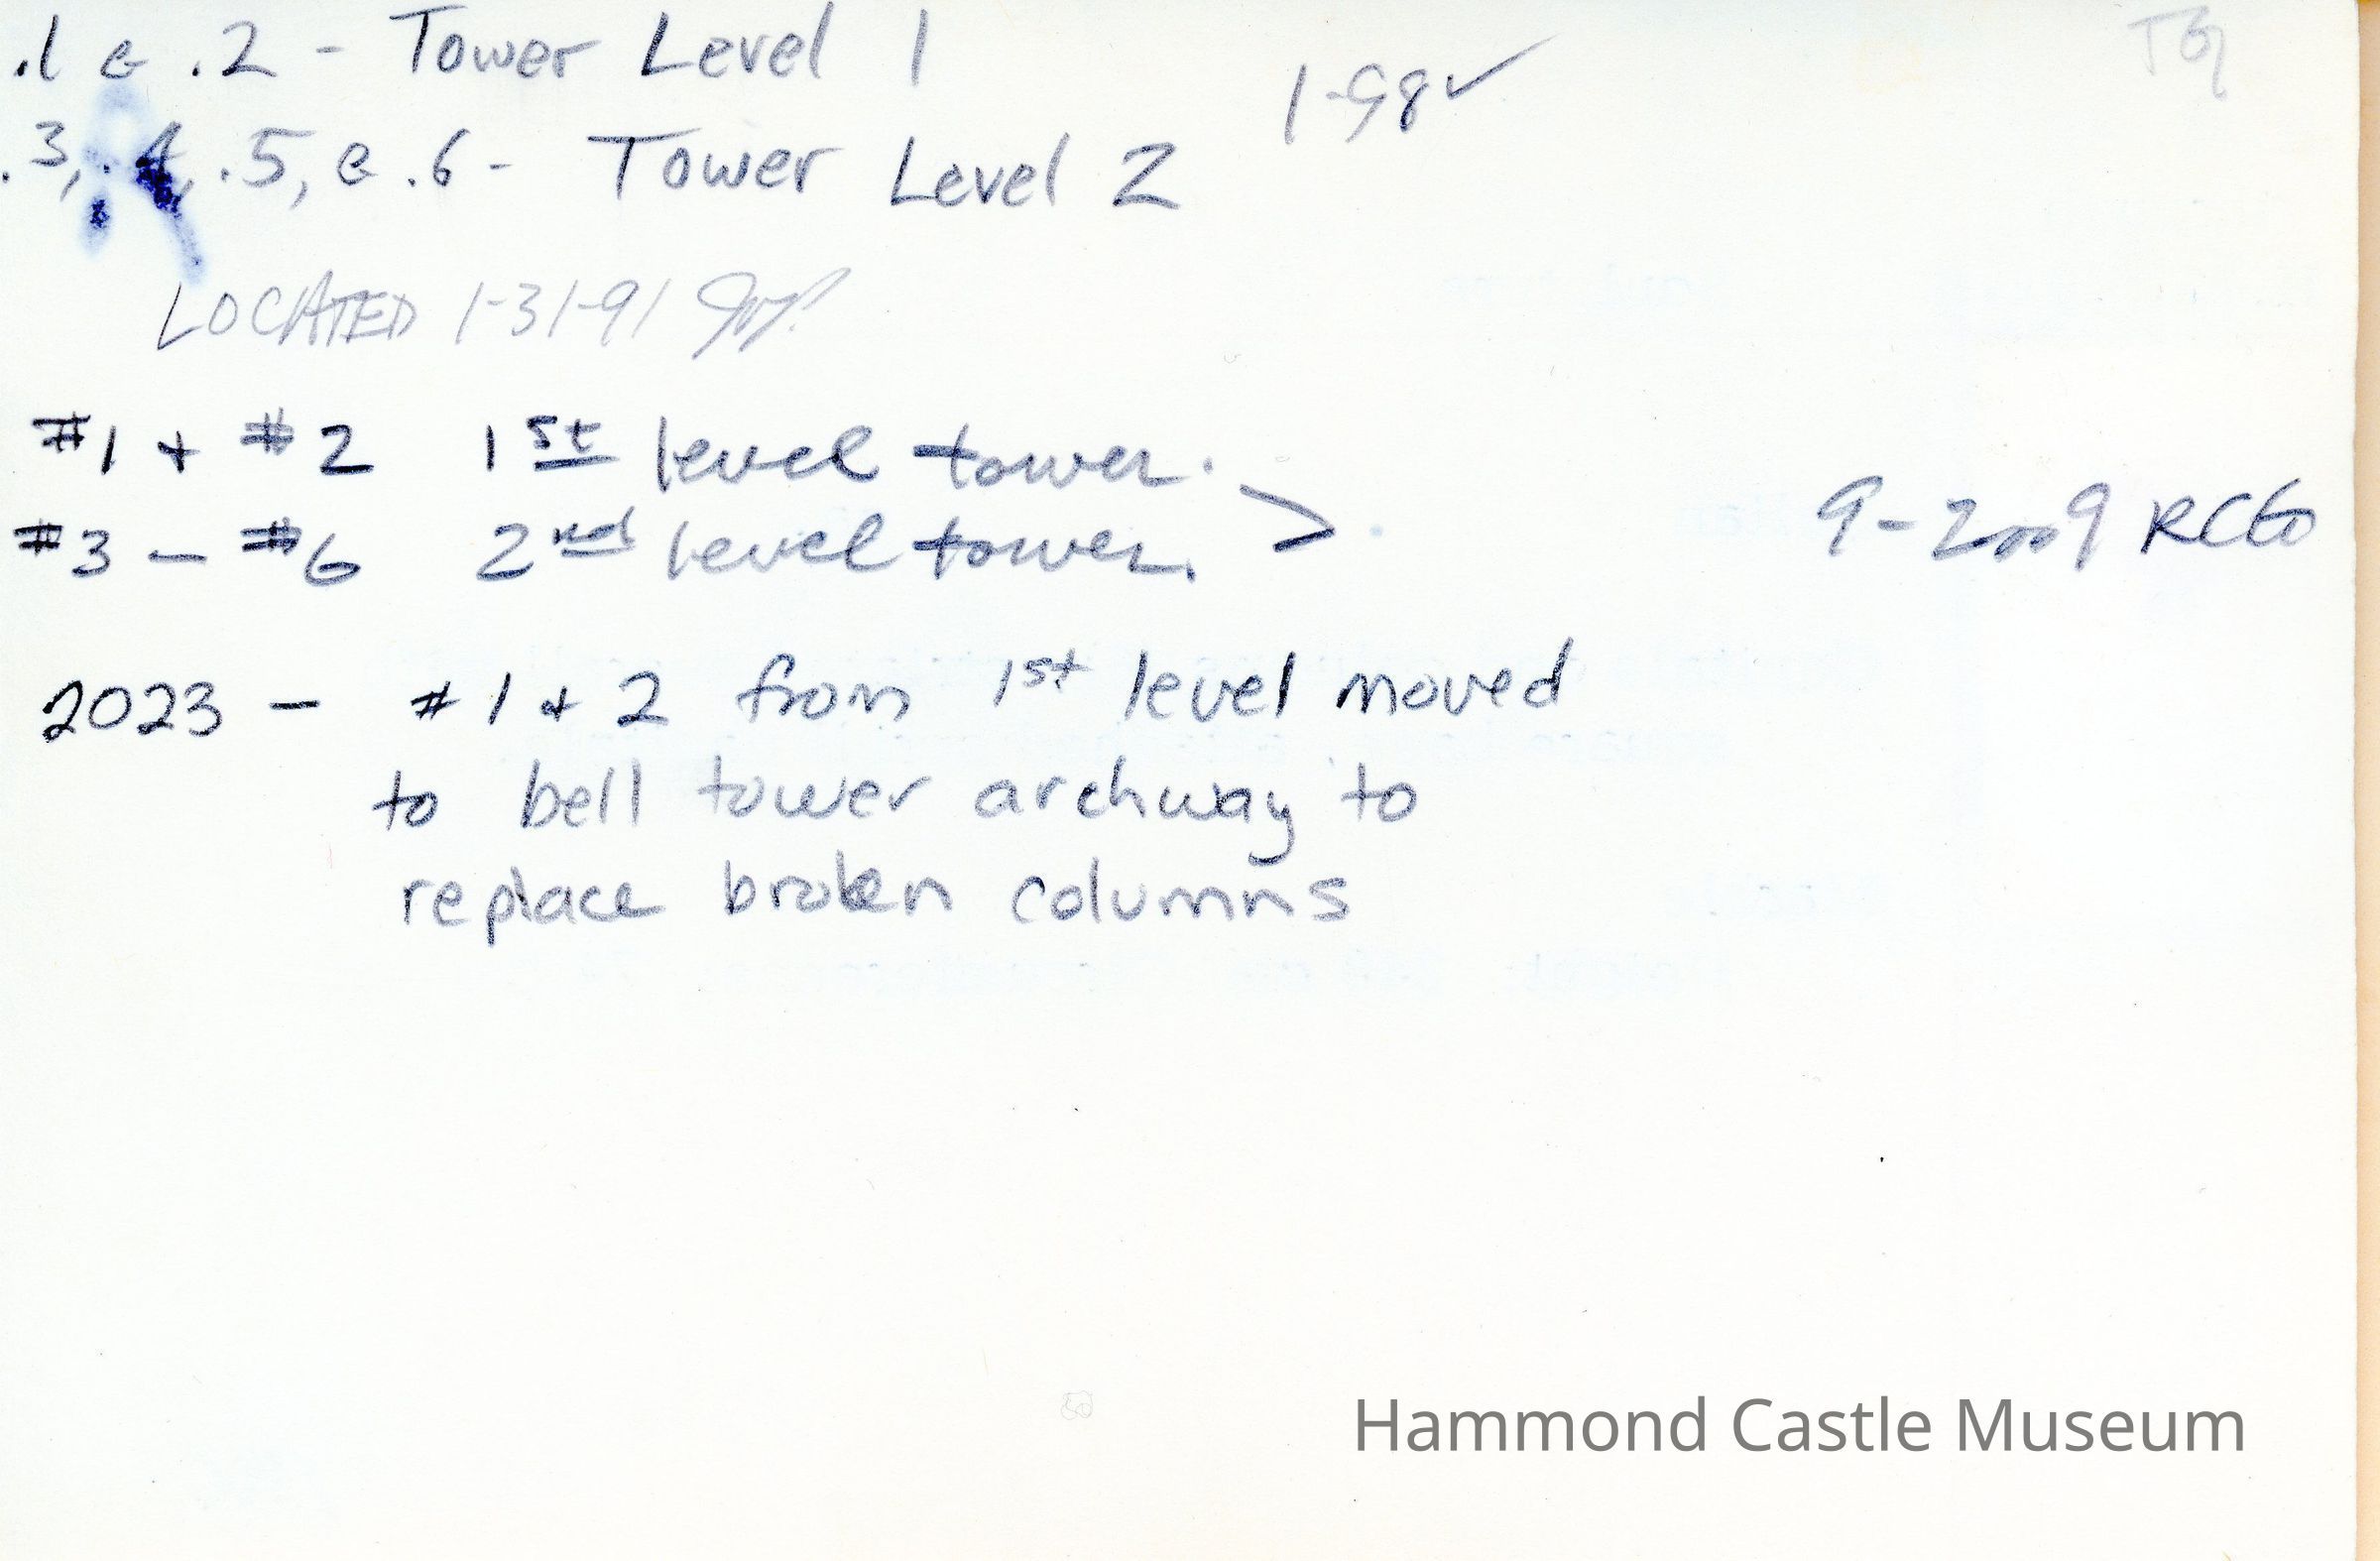 .1 & .2 - Tower Level 1
1-98 ✓
.3, .4, .5, & .6 - Tower Level 2
LOCATED 1-31-91
#1 + #2 1st level tower.
#3 — #6 2nd level tower. >
9-2009 RCG
2023 — #1 + 2 from 1st level moved
to bell tower archway to
replace broken columns
Hammond Castle Museum